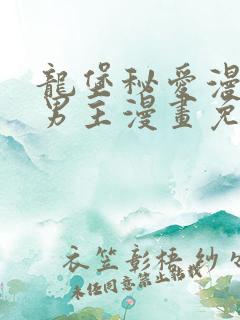 龍堡秘愛漫
男主漫畫免
衣笠彰梧 紗
未经同意禁止转载